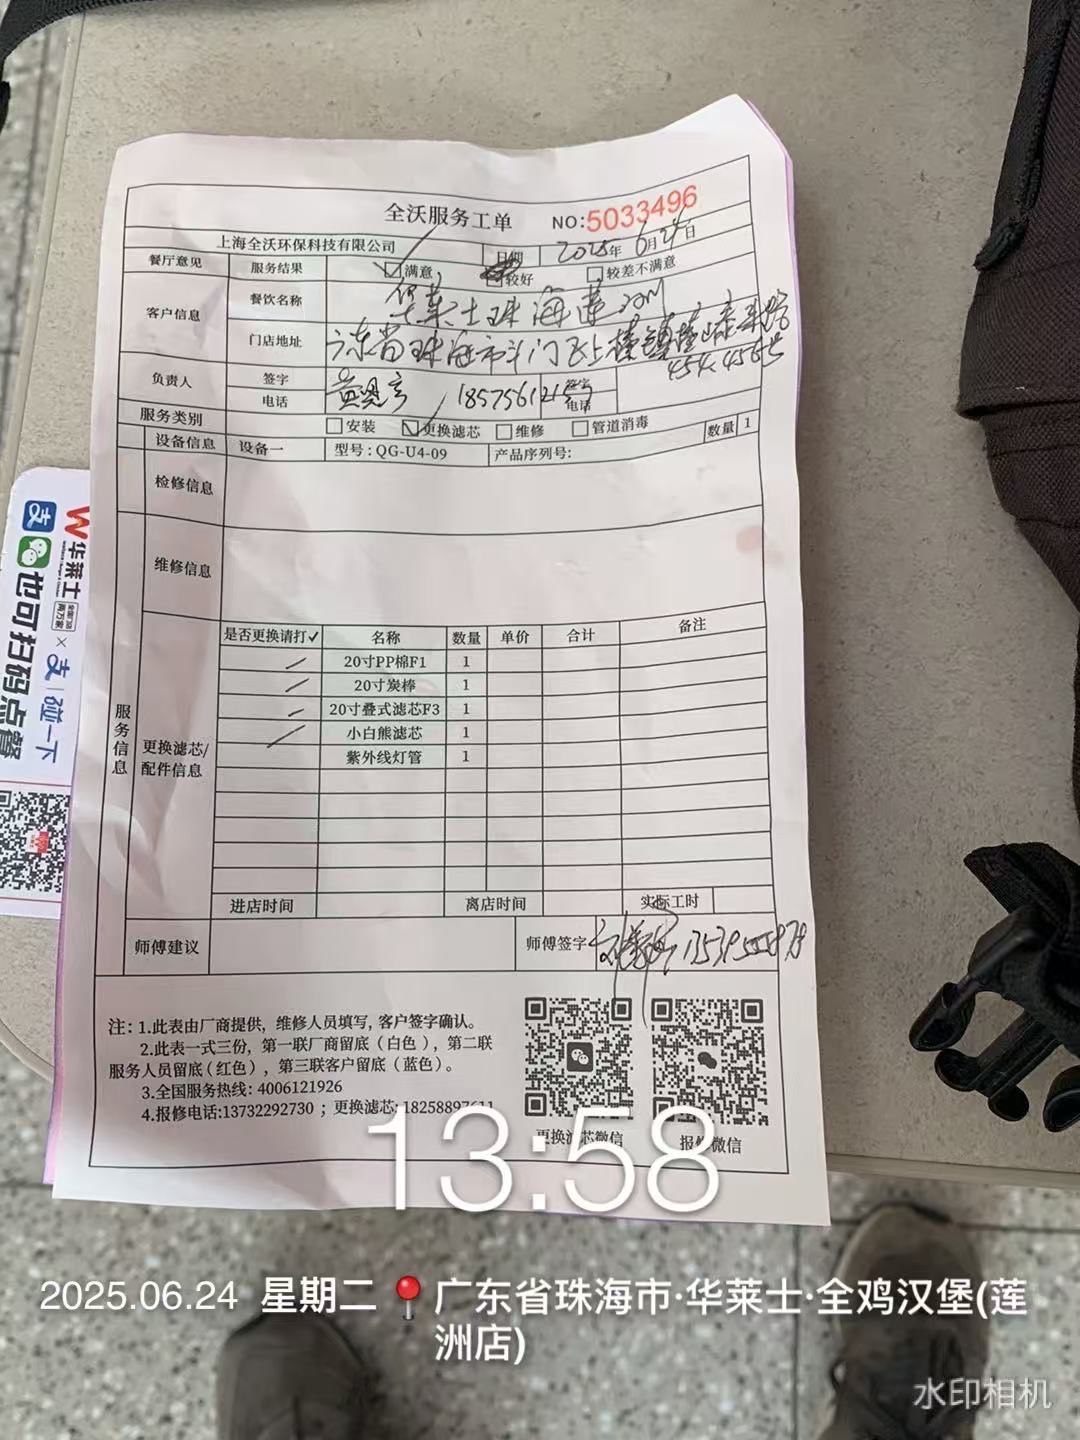 全沃服务工单 NO:5033496
上海全沃环保科技有限公司 日期 2025年6月24日
餐厅意见 服务结果 满意 较好 较差不满意
客户信息 餐饮名称 华莱士珠海莲洲
门店地址 广东省珠海市斗门
负责人 签字 签字
电话 电话
服务类别 安装 更换滤芯 维修 管道消毒
设备信息 设备一 型号:QG-U4-09 产品序列号: 数量 1
检修信息
维修信息
服务信息
更换滤芯/配件信息
是否更换请打✓ 名称 数量 单价 合计 备注
20寸PP棉F1 1
20寸炭棒 1
20寸叠式滤芯F3 1
小白熊滤芯 1
紫外线灯管 1
进店时间 离店时间 实际工时
师傅建议 师傅签字
注：1.此表由厂商提供，维修人员填写，客户签字确认。
2.此表一式三份，第一联厂商留底（白色），第二联
服务人员留底（红色），第三联客户留底（蓝色）。
3.全国服务热线：4006121926
4.报修电话:13732292730；更换滤芯:18258897611
更换滤芯微信 报修微信
华莱士 × 支 碰一下
也可扫码点餐
13:58
2025.06.24 星期二 广东省珠海市·华莱士·全鸡汉堡(莲
洲店)
水印相机